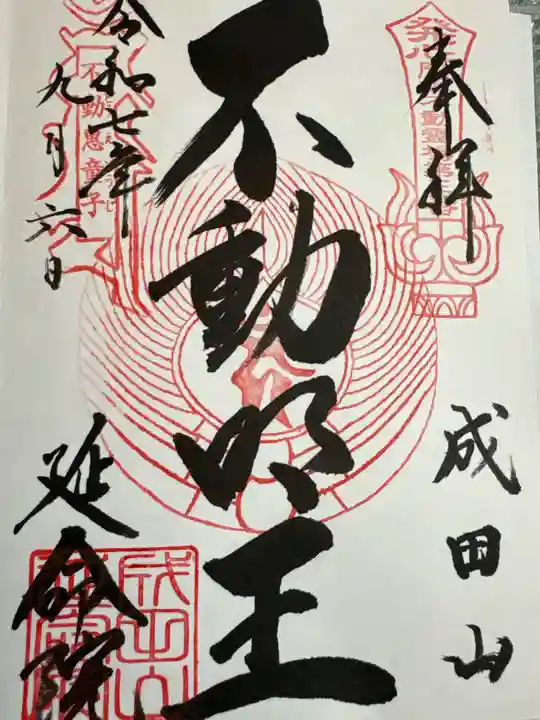 奉拝
成田山
不動明王
令和七年
九月六日
延命院
不動恩童子
成田山